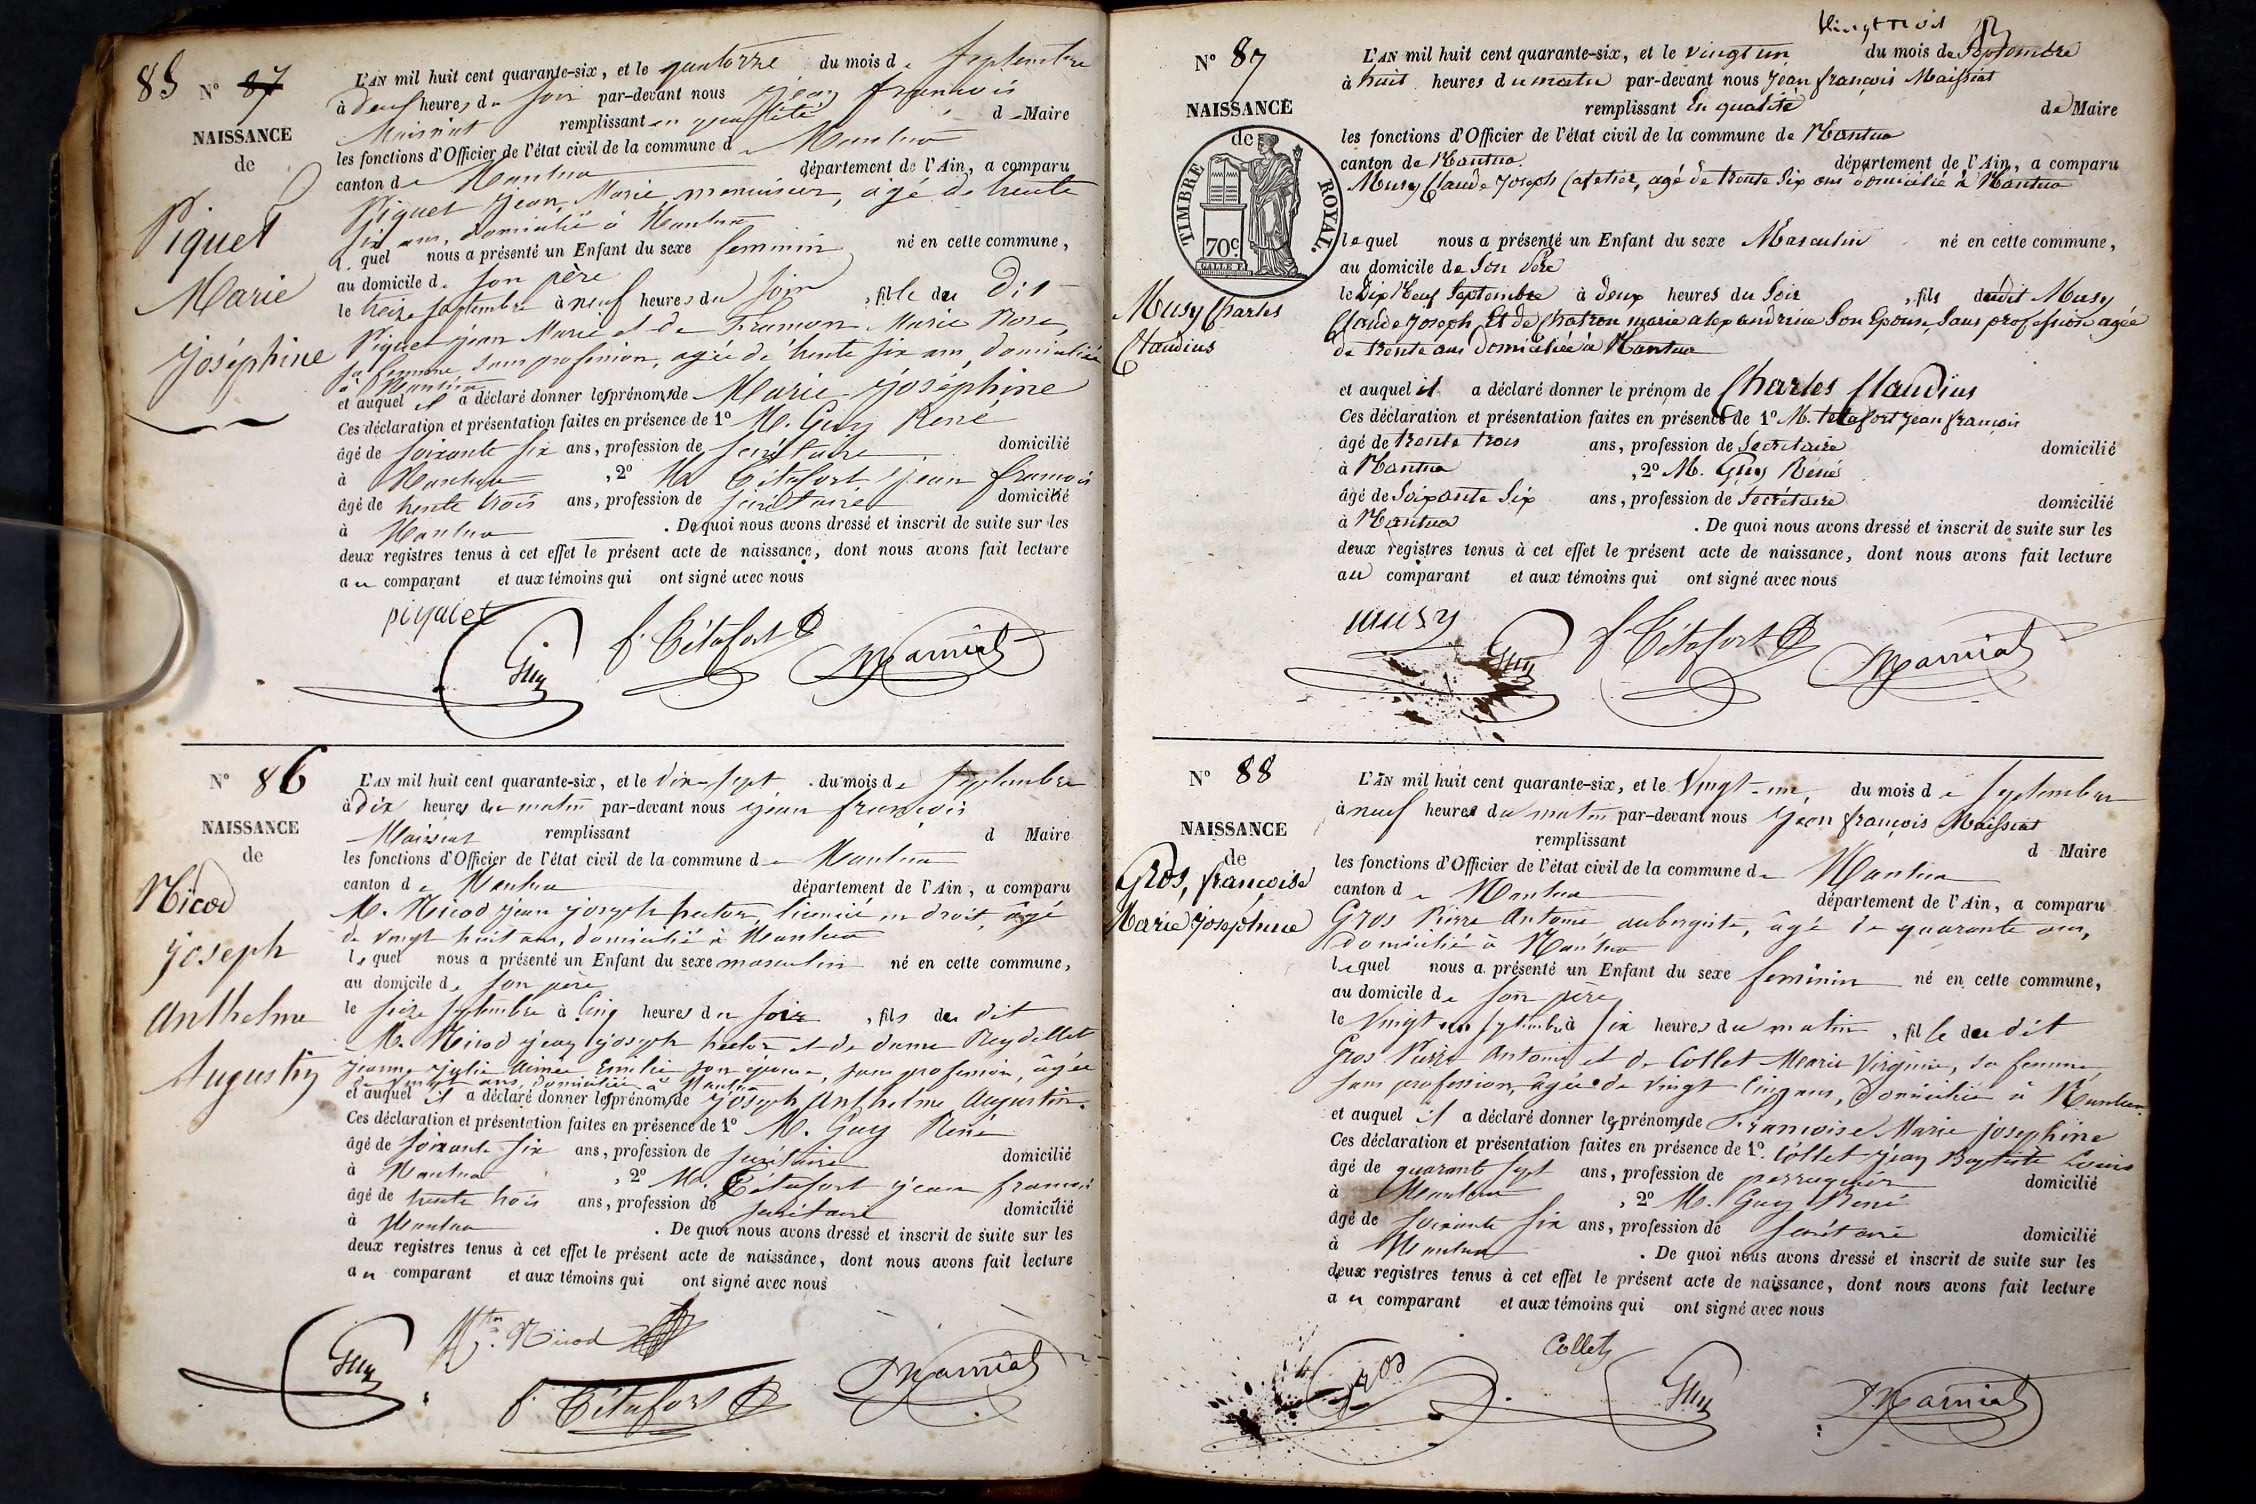 85 N° 87
NAISSANCE
de
Piquet
Marie
Joséphine
L'AN mil huit cent quarante-six, et le quatorze du mois de septembre
à deux heures du soir par-devant nous Jean françois
Maissiat remplissant en qualité d Maire
les fonctions d'Officier de l'état civil de la commune de Mantua
canton de Nantua département de l'Ain, a comparu
Piquet Jean Marie, menuisier, agé de trente
six ans, domicilié à Nantua
lequel nous a présenté un Enfant du sexe feminin né en cette commune,
au domicile de son père
le treize septembre à neuf heures du soir, fille du dit
Piquet jean Marie et de Framon Marie Rose,
sa femme, sans profession, agée de trente six ans, domiciliée
à Nantua
et auquel il a déclaré donner les prénoms de Marie Joséphine
Ces déclaration et présentation faites en présence de 1° M. Guy René
âgé de soixante six ans, profession de secrétaire domicilié
à Nantua, 2° M. Tétafort jean francois
âgé de trente trois ans, profession de secrétaire domicilié
à Nantua. De quoi nous avons dressé et inscrit de suite sur les
deux registres tenus à cet effet le présent acte de naissance, dont nous avons fait lecture
au comparant et aux témoins qui ont signé avec nous
piquet
Guy f. Tétafort Maissiat
N° 86
NAISSANCE
de
Nicod
joseph
anthelme
Augustin
L'AN mil huit cent quarante-six, et le dix-sept du mois de septembre
à dix heures du matin par-devant nous jean françois
Maissiat remplissant d Maire
les fonctions d'Officier de l'état civil de la commune de Nantua
canton de Nantua département de l'Ain, a comparu
M. Nicod jean joseph hector, licencié en droit, âgé
de vingt huit ans, domicilié à Nantua
lequel nous a présenté un Enfant du sexe masculin né en cette commune,
au domicile de son père
le seize septembre à cinq heures du soir, fils du dit
M. Nicod jean joseph hector et de dame Reydellet
jeanne julie aimée Emilie son épouse, sans profession, âgée
de vingt ans, domiciliée à Nantua
et auquel il a déclaré donner les prénoms de joseph anthelme augustin.
Ces déclaration et présentation faites en présence de 1° M. Guy René
âgé de soixante six ans, profession de secrétaire domicilié
à Nantua, 2° M. Tétafort jean francois
âgé de trente trois ans, profession de secrétaire domicilié
à Nantua. De quoi nous avons dressé et inscrit de suite sur les
deux registres tenus à cet effet le présent acte de naissance, dont nous avons fait lecture
au comparant et aux témoins qui ont signé avec nous
Guy Nicod
f. Tétafort Maissiat
vingt trois
N° 87
NAISSANCE
de
TIMBRE ROYAL.
70c
Musy Charles
Claudius
L'AN mil huit cent quarante-six, et le vingt un du mois de Septembre
à huit heures du matin par-devant nous Jean françois Maissiat
remplissant En qualité de Maire
les fonctions d'Officier de l'état civil de la commune de Nantua
canton de Nantua département de l'Ain, a comparu
Musy Claude Joseph Cafetier, agé de trente Six ans domicilié à Nantua
lequel nous a présenté un Enfant du sexe Masculin né en cette commune,
au domicile de Son Père
le Dix Neuf Septembre à Deux heures du Soir, fils dudit Musy
Claude Joseph, Et de Chatron marie alexandrine Son Epouse, Sans profession agée
de trente ans Domiciliée à Nantua
et auquel il a déclaré donner le prénom de Charles Claudius
Ces déclaration et présentation faites en présence de 1° M. tetafort Jean françois
âgé de trente trois ans, profession de Secretaire domicilié
à Nantua, 2° M. Guy Réné
âgé de Soixante Six ans, profession de Secrétaire domicilié
à Nantua. De quoi nous avons dressé et inscrit de suite sur les
deux registres tenus à cet effet le présent acte de naissance, dont nous avons fait lecture
au comparant et aux témoins qui ont signé avec nous
musy
Guy f. Tétafort Maissiat
N° 88
NAISSANCE
de
Gros, françoise
Marie joséphine
L'AN mil huit cent quarante-six, et le Vingt-un, du mois de septembre
à neuf heures du matin par-devant nous Jean françois Maissiat
remplissant d Maire
les fonctions d'Officier de l'état civil de la commune de Nantua
canton de Nantua département de l'Ain, a comparu
Gros Pierre Antoine aubergiste, âgé de quarante ans,
domicilié à Nantua
lequel nous a présenté un Enfant du sexe feminin né en cette commune,
au domicile de son père
le vingt un septembre à six heures du matin, fille du dit
Gros Pierre Antoine et de Collet Marie Virginie, sa femme,
sans profession, âgée de vingt cinq ans, domiciliée à Nantua
et auquel il a déclaré donner les prénoms de Françoise Marie josephine
Ces déclaration et présentation faites en présence de 1°. Collet jean Baptiste Louis
âgé de quarante sept ans, profession de perruquier domicilié
à Nantua, 2° M. Guy René
âgé de soixante six ans, profession de secrétaire domicilié
à Nantua. De quoi nous avons dressé et inscrit de suite sur les
deux registres tenus à cet effet le présent acte de naissance, dont nous avons fait lecture
au comparant et aux témoins qui ont signé avec nous
Collet
Gros Guy Maissiat